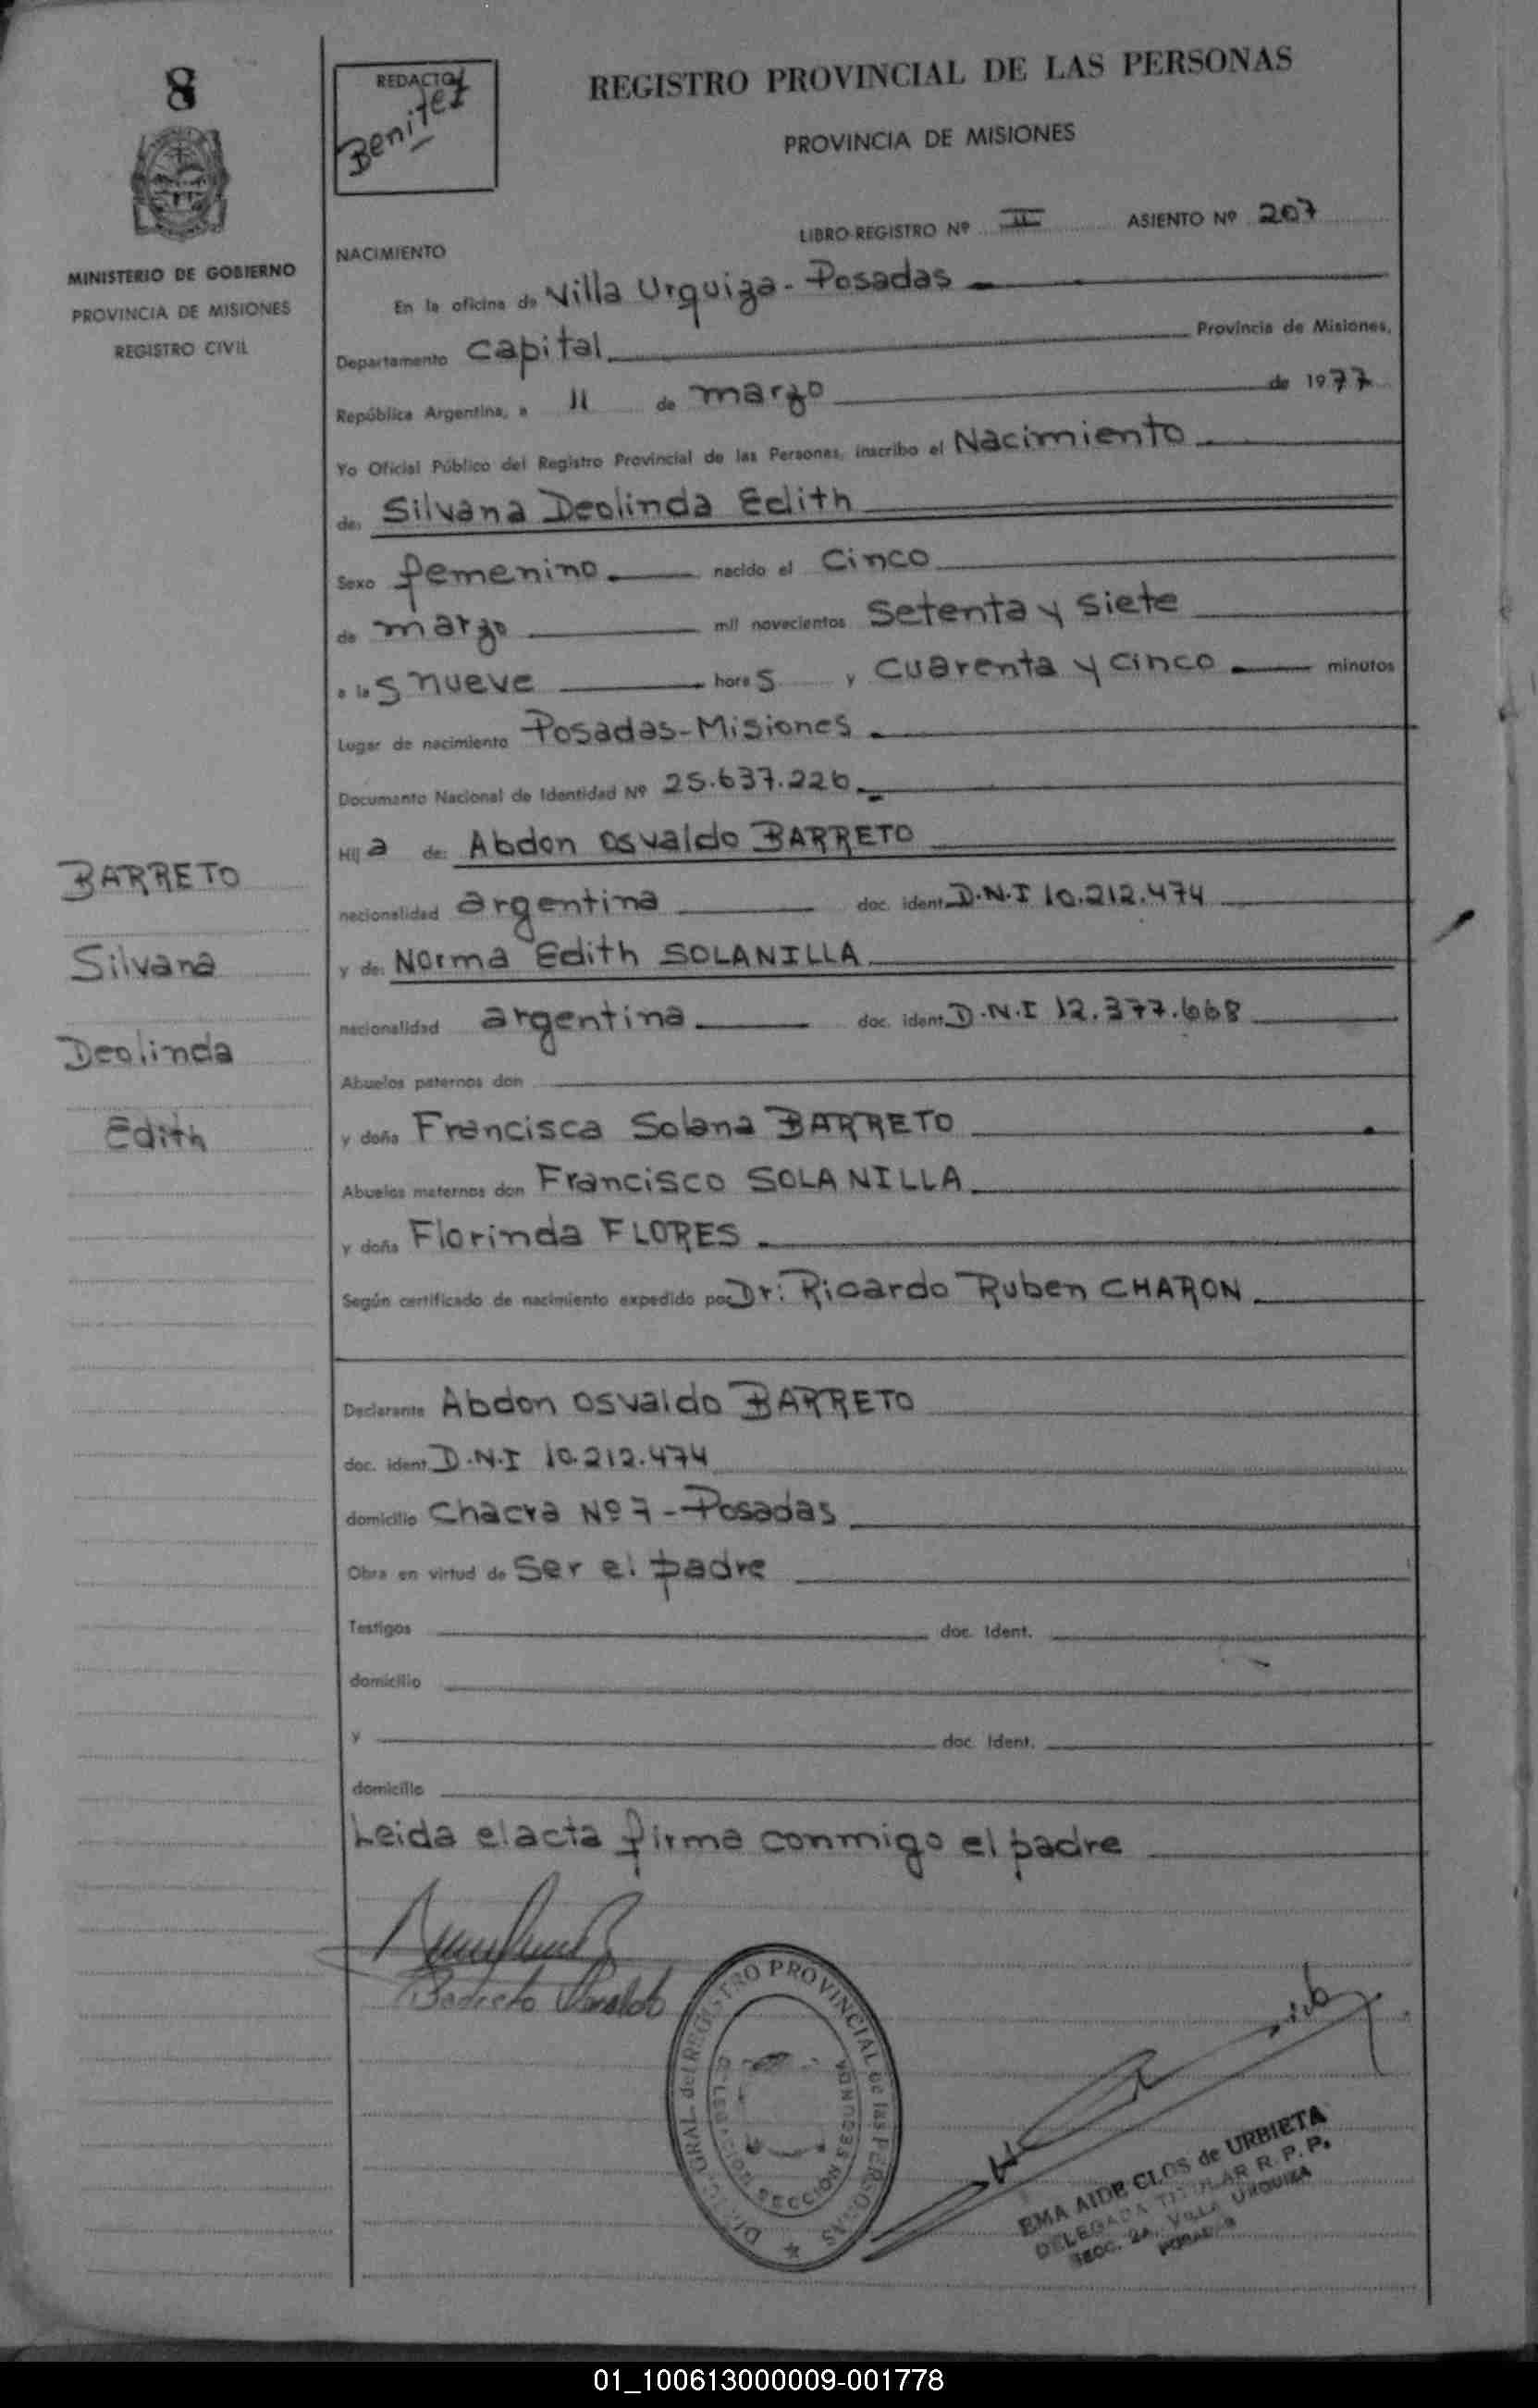 8
REDACTO
Benitez
REGISTRO PROVINCIAL DE LAS PERSONAS
PROVINCIA DE MISIONES
MINISTERIO DE GOBIERNO
PROVINCIA DE MISIONES
REGISTRO CIVIL
LIBRO-REGISTRO Nº II ASIENTO Nº 207
NACIMIENTO
En la oficina de Villa Urquiza - Posadas
Departamento Capital Provincia de Misiones,
República Argentina, a 11 de marzo de 1977
Yo Oficial Público del Registro Provincial de las Personas, inscribo el Nacimiento
de: Silvana Deolinda Edith
Sexo femenino nacido el Cinco
de marzo mil novecientos Setenta y Siete
a las nueve horas y cuarenta y cinco minutos
Lugar de nacimiento Posadas-Misiones
Documento Nacional de Identidad Nº 25.637.226
Hija de: Abdon Osvaldo BARRETO
nacionalidad argentina doc. ident. D.N.I 10.212.474
y de: Norma Edith SOLANILLA
nacionalidad argentina doc. ident. D.N.I 12.377.668
Abuelos paternos don
y doña Francisca Solana BARRETO
Abuelos maternos don Francisco SOLANILLA
y doña Florinda FLORES
Según certificado de nacimiento expedido por Dr: Ricardo Ruben CHARON
BARRETO
Silvana
Deolinda
Edith
Declarante Abdon Osvaldo BARRETO
doc. ident. D.N.I 10.212.474
domicilio Chacra Nº 7 - Posadas
Obra en virtud de Ser el padre
Testigos doc. Ident.
domicilio
y doc. Ident.
domicilio
Leida el acta firma conmigo el padre
Barreto Osvaldo
GRAL. del REGISTRO PROVINCIAL de las PERSONAS
DELEGACION SECCION SEGUNDA
EMA AIDE CLOS de URBIETA
DELEGADA TITULAR R. P. P.
SECC. 2A. VILLA URQUIZA
POSADAS
01_100613000009-001778